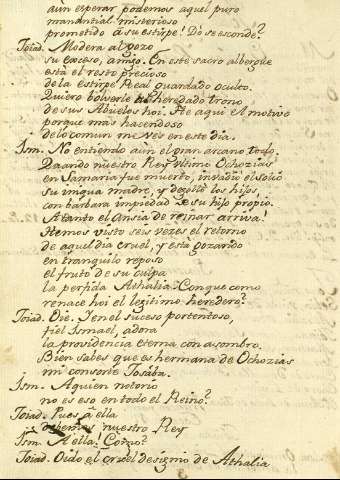 aùn esperar podemos aquel puro
manantial misterioso
prometido à su estirpe! Dò se esconde?
Joiad. Modera al gozo
su exceso, amigo. En este sacro albergue
està el resto precioso
de la estirpe Real guardado oculto.
Quiero bolverle heredado trono
de sus Abuelos hoi. He aqui el motivo
porque mas hacendoso
de lo comun me vès en este dia.
Ism. No entiendo aùn el gran arcano todo.
Quando nuestro Rey ultimo Ochozias
en Samaria fue muerto, invadiò el solio
su iniqua madre, y degollò los hijos,
con barbara impiedad de su hijo propio.
A tanto el ansia de reinar arriva!
Hemos visto seis vezes el retorno
de aquel dia cruel, y està gozando
en tranquilo reposo
el fruto de su culpa
la perfida Athalia. Conque como
renace hoi el legitimo heredero?
Joiad. Oie. I en el suceso portentoso,
fiel Ismael, adora
la providencia eterna con asombro.
Bien sabes que es hermana de Ochozias
mi consorte Josàba.
Ism. A quien notorio
no es eso en todo el Reino?
Joiad. Pues à ella
debemos nuestro Rey
Ism. A ella! Como?
Joiad. Oido el cruel designio de Athalia